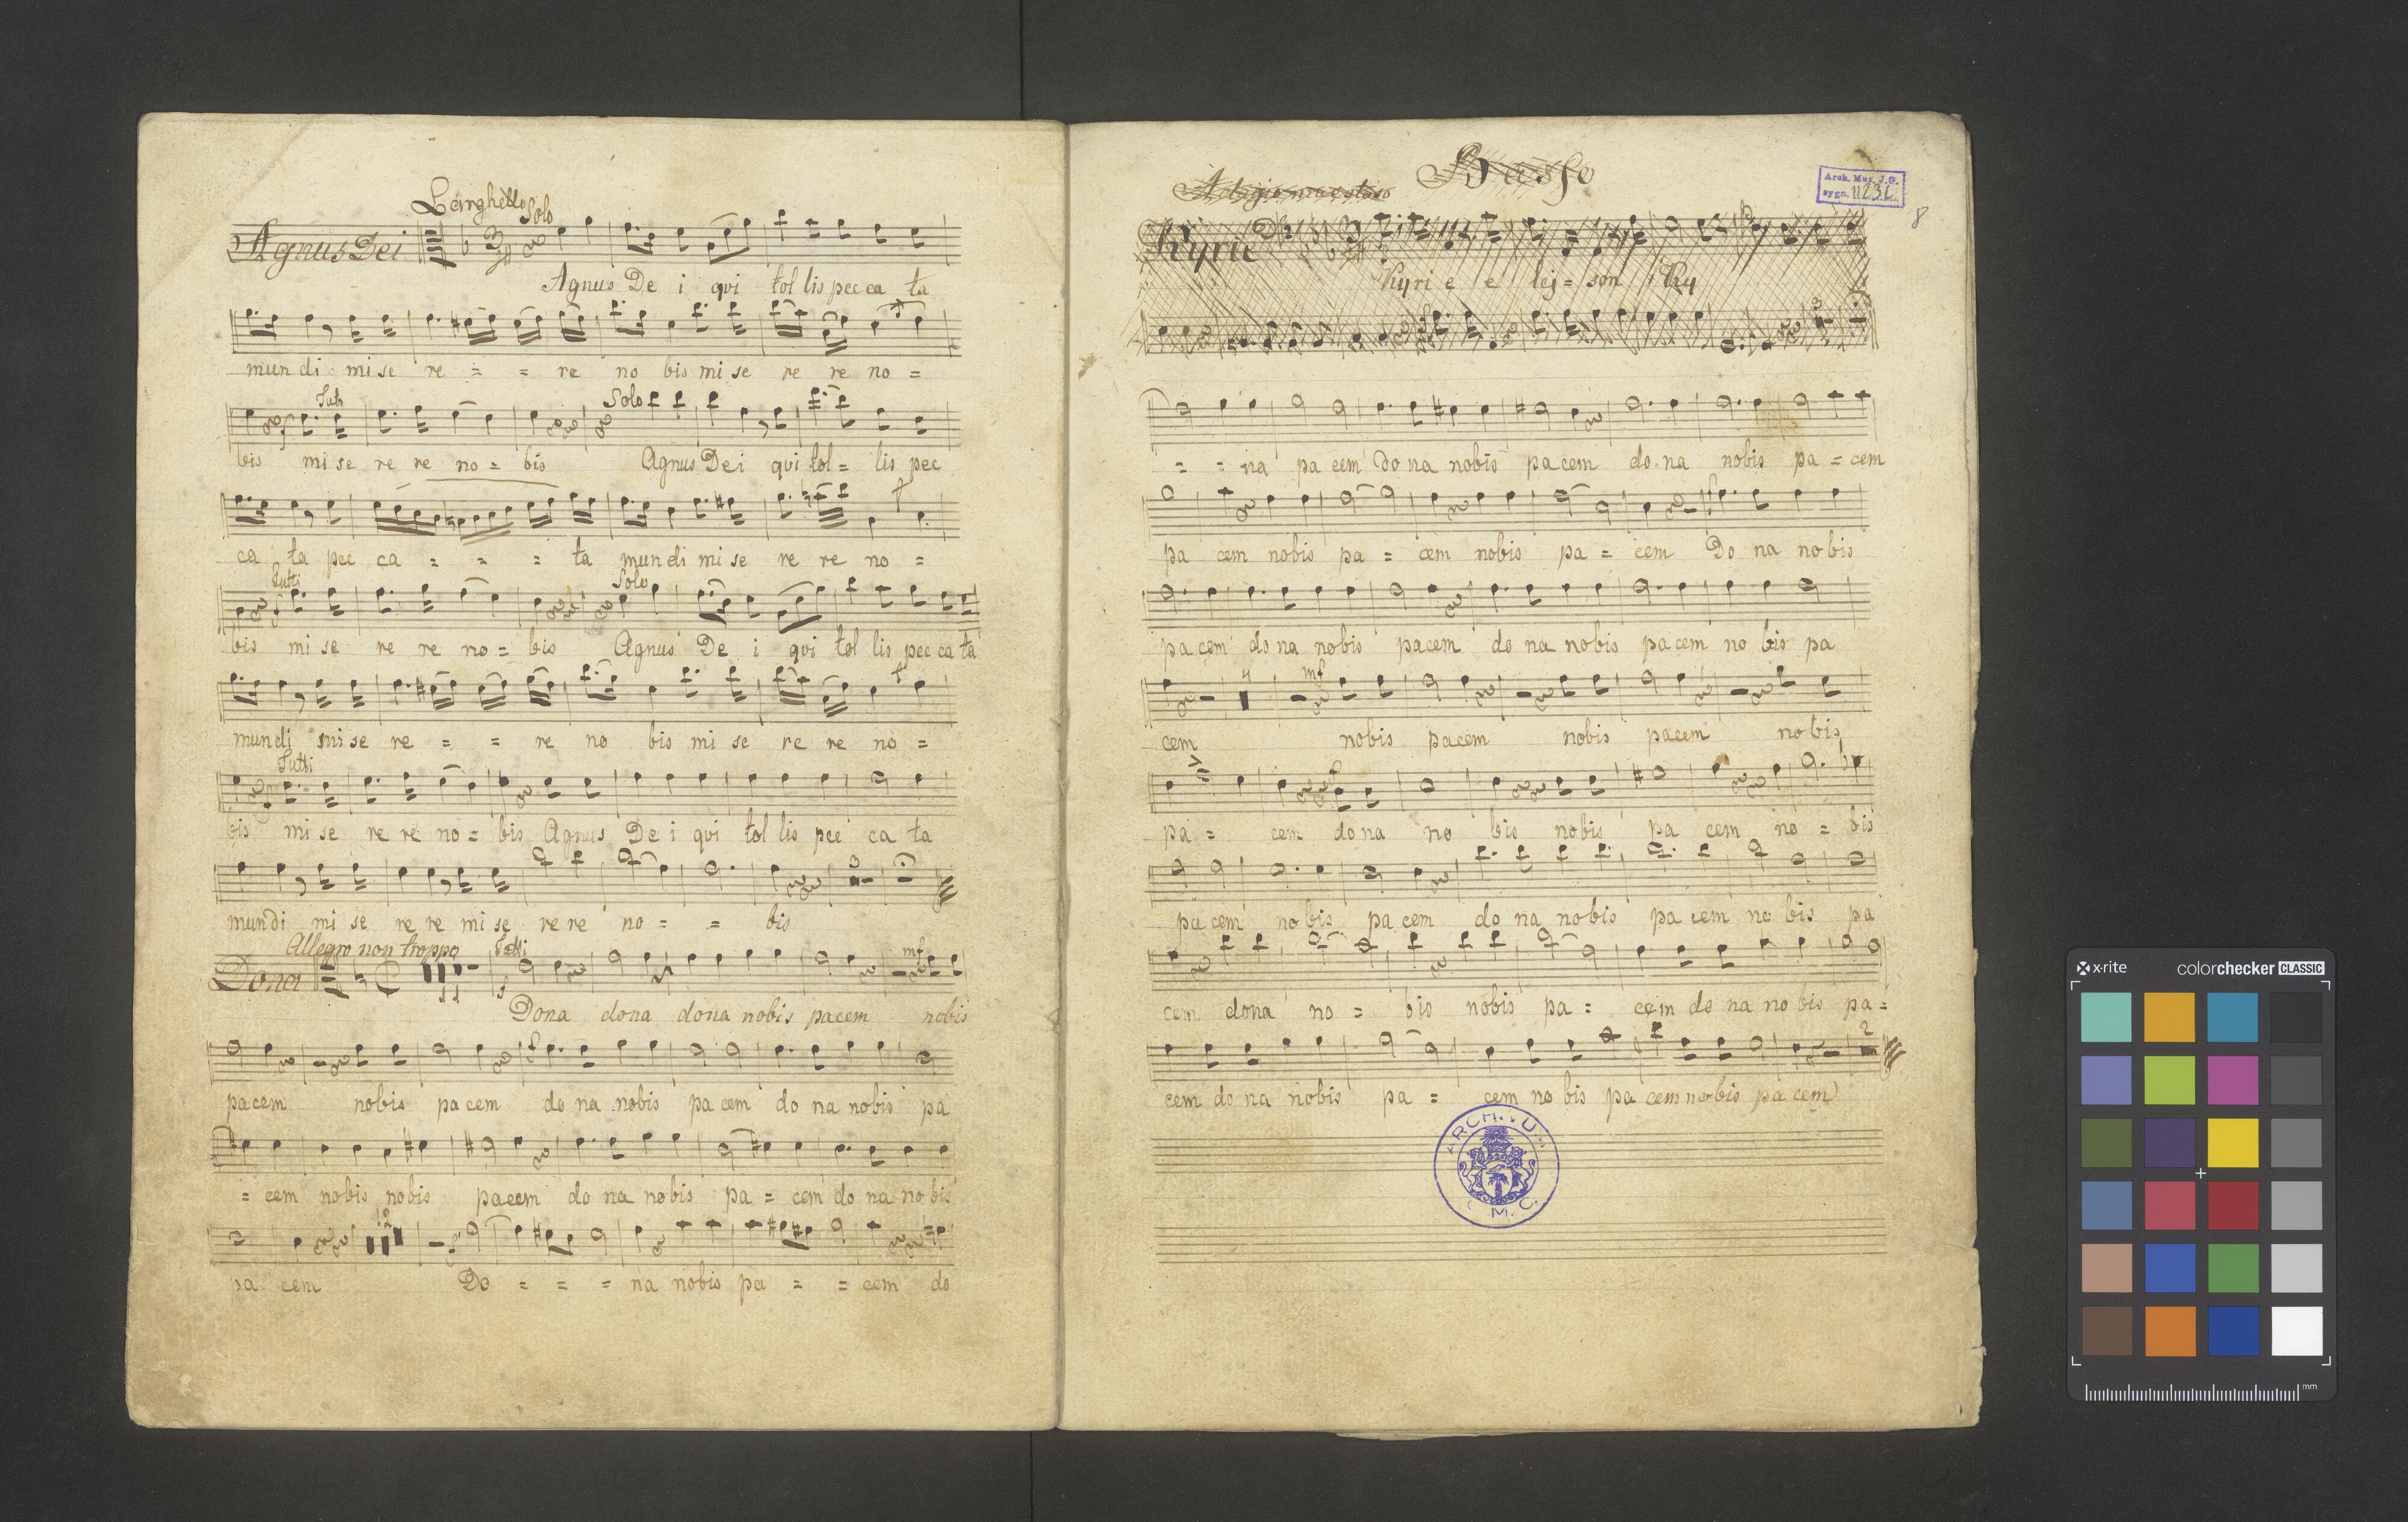 Larghetto Solo
Agnus Dei
Agnus De i qvi tol lis pec ca ta
mun di mi se re = = re no bis mi se re re no =
Tutti Solo
bis mi se re re no = bis Agnus Dei qvi tol = lis pec
ca ta pec ca = = = ta mundi mi se re re no =
Tutti Solo
bis mi se re re no = bis Agnus De i qvi tol lis pec ca ta
mundi mi se re = = re no bis mi se re re no =
Tutti
bis mi se re re no = bis Agnus De i qvi tol lis pec ca ta
3
mundi mi se re re mi se re re no = = bis
Allegro non troppo Tutti mf
Dona
Dona dona dona nobis pacem nobis
pacem nobis pa cem do na nobis pa cem do na nobis pa
= cem nobis nobis pacem do na nobis pa = cem do na no bis
pa cem Do = = = na nobis pa = = cem do
Basso
Adagio maestoso
Arch. Muz. J.G.
sygn. 1123
8
Kyrie
Kyri e e lej = son Ky
3
= = na pa cem Do na nobis pacem do na nobis pa = cem
pa cem nobis pa = cem nobis pa = cem Do na nobis
pa cem do na nobis pacem do na nobis pa cem no bis pa
4 mf
cem nobis pacem nobis pacem nobis
pa = cem do na no bis nobis pa cem no = bis
pa cem no bis pa cem do na nobis pa cem no bis pa
cem dona no = bis nobis pa = cem do na no bis pa =
2
cem do na nobis pa = cem no bis pa cem nobis pa cem
ARCHIVUM
C. M. C.
x-rite colorchecker CLASSIC
mm